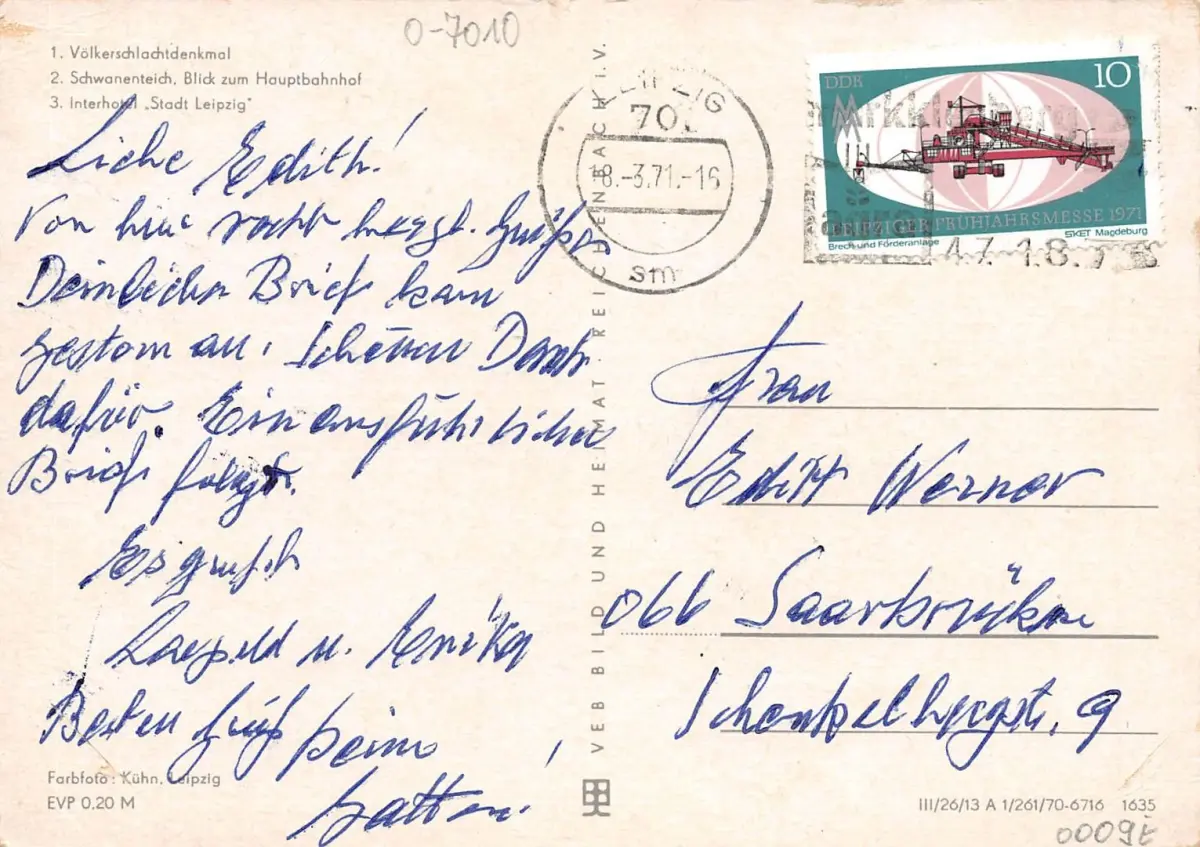 0-7010
1. Völkerschlachtdenkmal
2. Schwanenteich, Blick zum Hauptbahnhof
3. Interhotel „Stadt Leipzig"
Liebe Edith!
Von hier recht herzl. Grüße
Dein lieber Brief kam
gestern an. Schönen Dank
dafür. Ein ausführlicher
Brief folgt.
Es grüßt
Leopold u. Enrika
Besten Gruß
Gatten.
Farbfoto: Kühn, Leipzig
EVP 0,20 M
VEB BILD UND HEIMAT REICHENBACH i. V.
LEIPZIG
70
18.-3.71.-16
sm
DDR
10
MM
LEIPZIGER FRÜHJAHRSMESSE 1971
Brech und Förderanlage
SKET Magdeburg
Markkleeberg
Frau
Edith Werner
066 Saarbrücken
Schenkelbergstr. 9
III/26/13 A 1/261/70-6716 1635